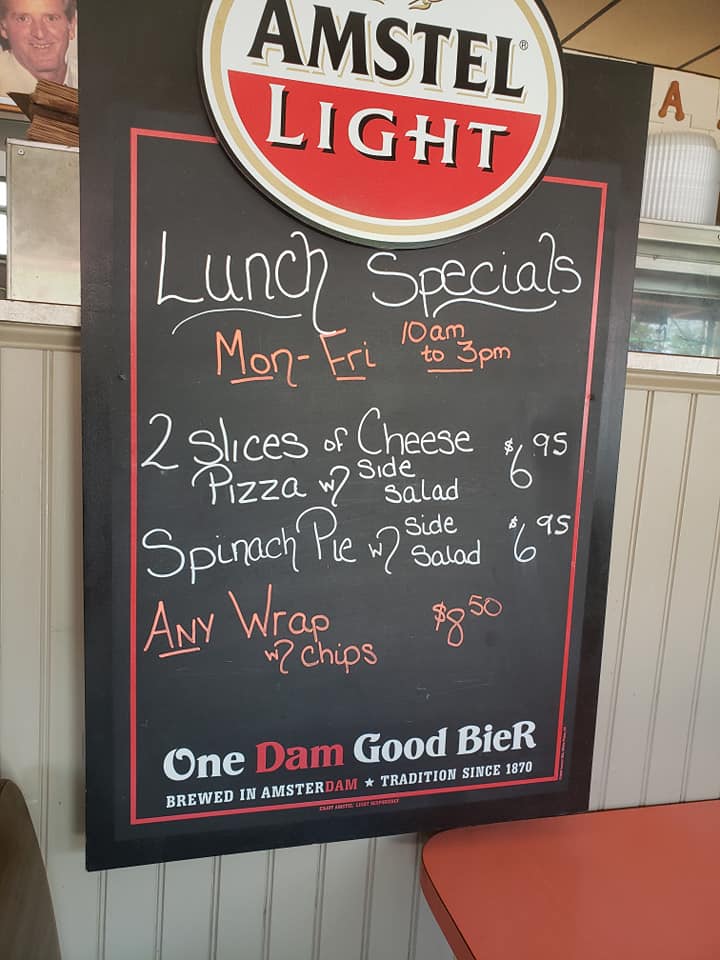 AMSTEL®
LIGHT
Lunch Specials
Mon-Fri 10am
to 3pm
2 slices of Cheese $6.95
Pizza w/ side
salad
Spinach Pie w/ side
salad $6.95
ANY Wrap $8.50
w/ chips
One Dam Good BieR
BREWED IN AMSTERDAM ★ TRADITION SINCE 1870
A